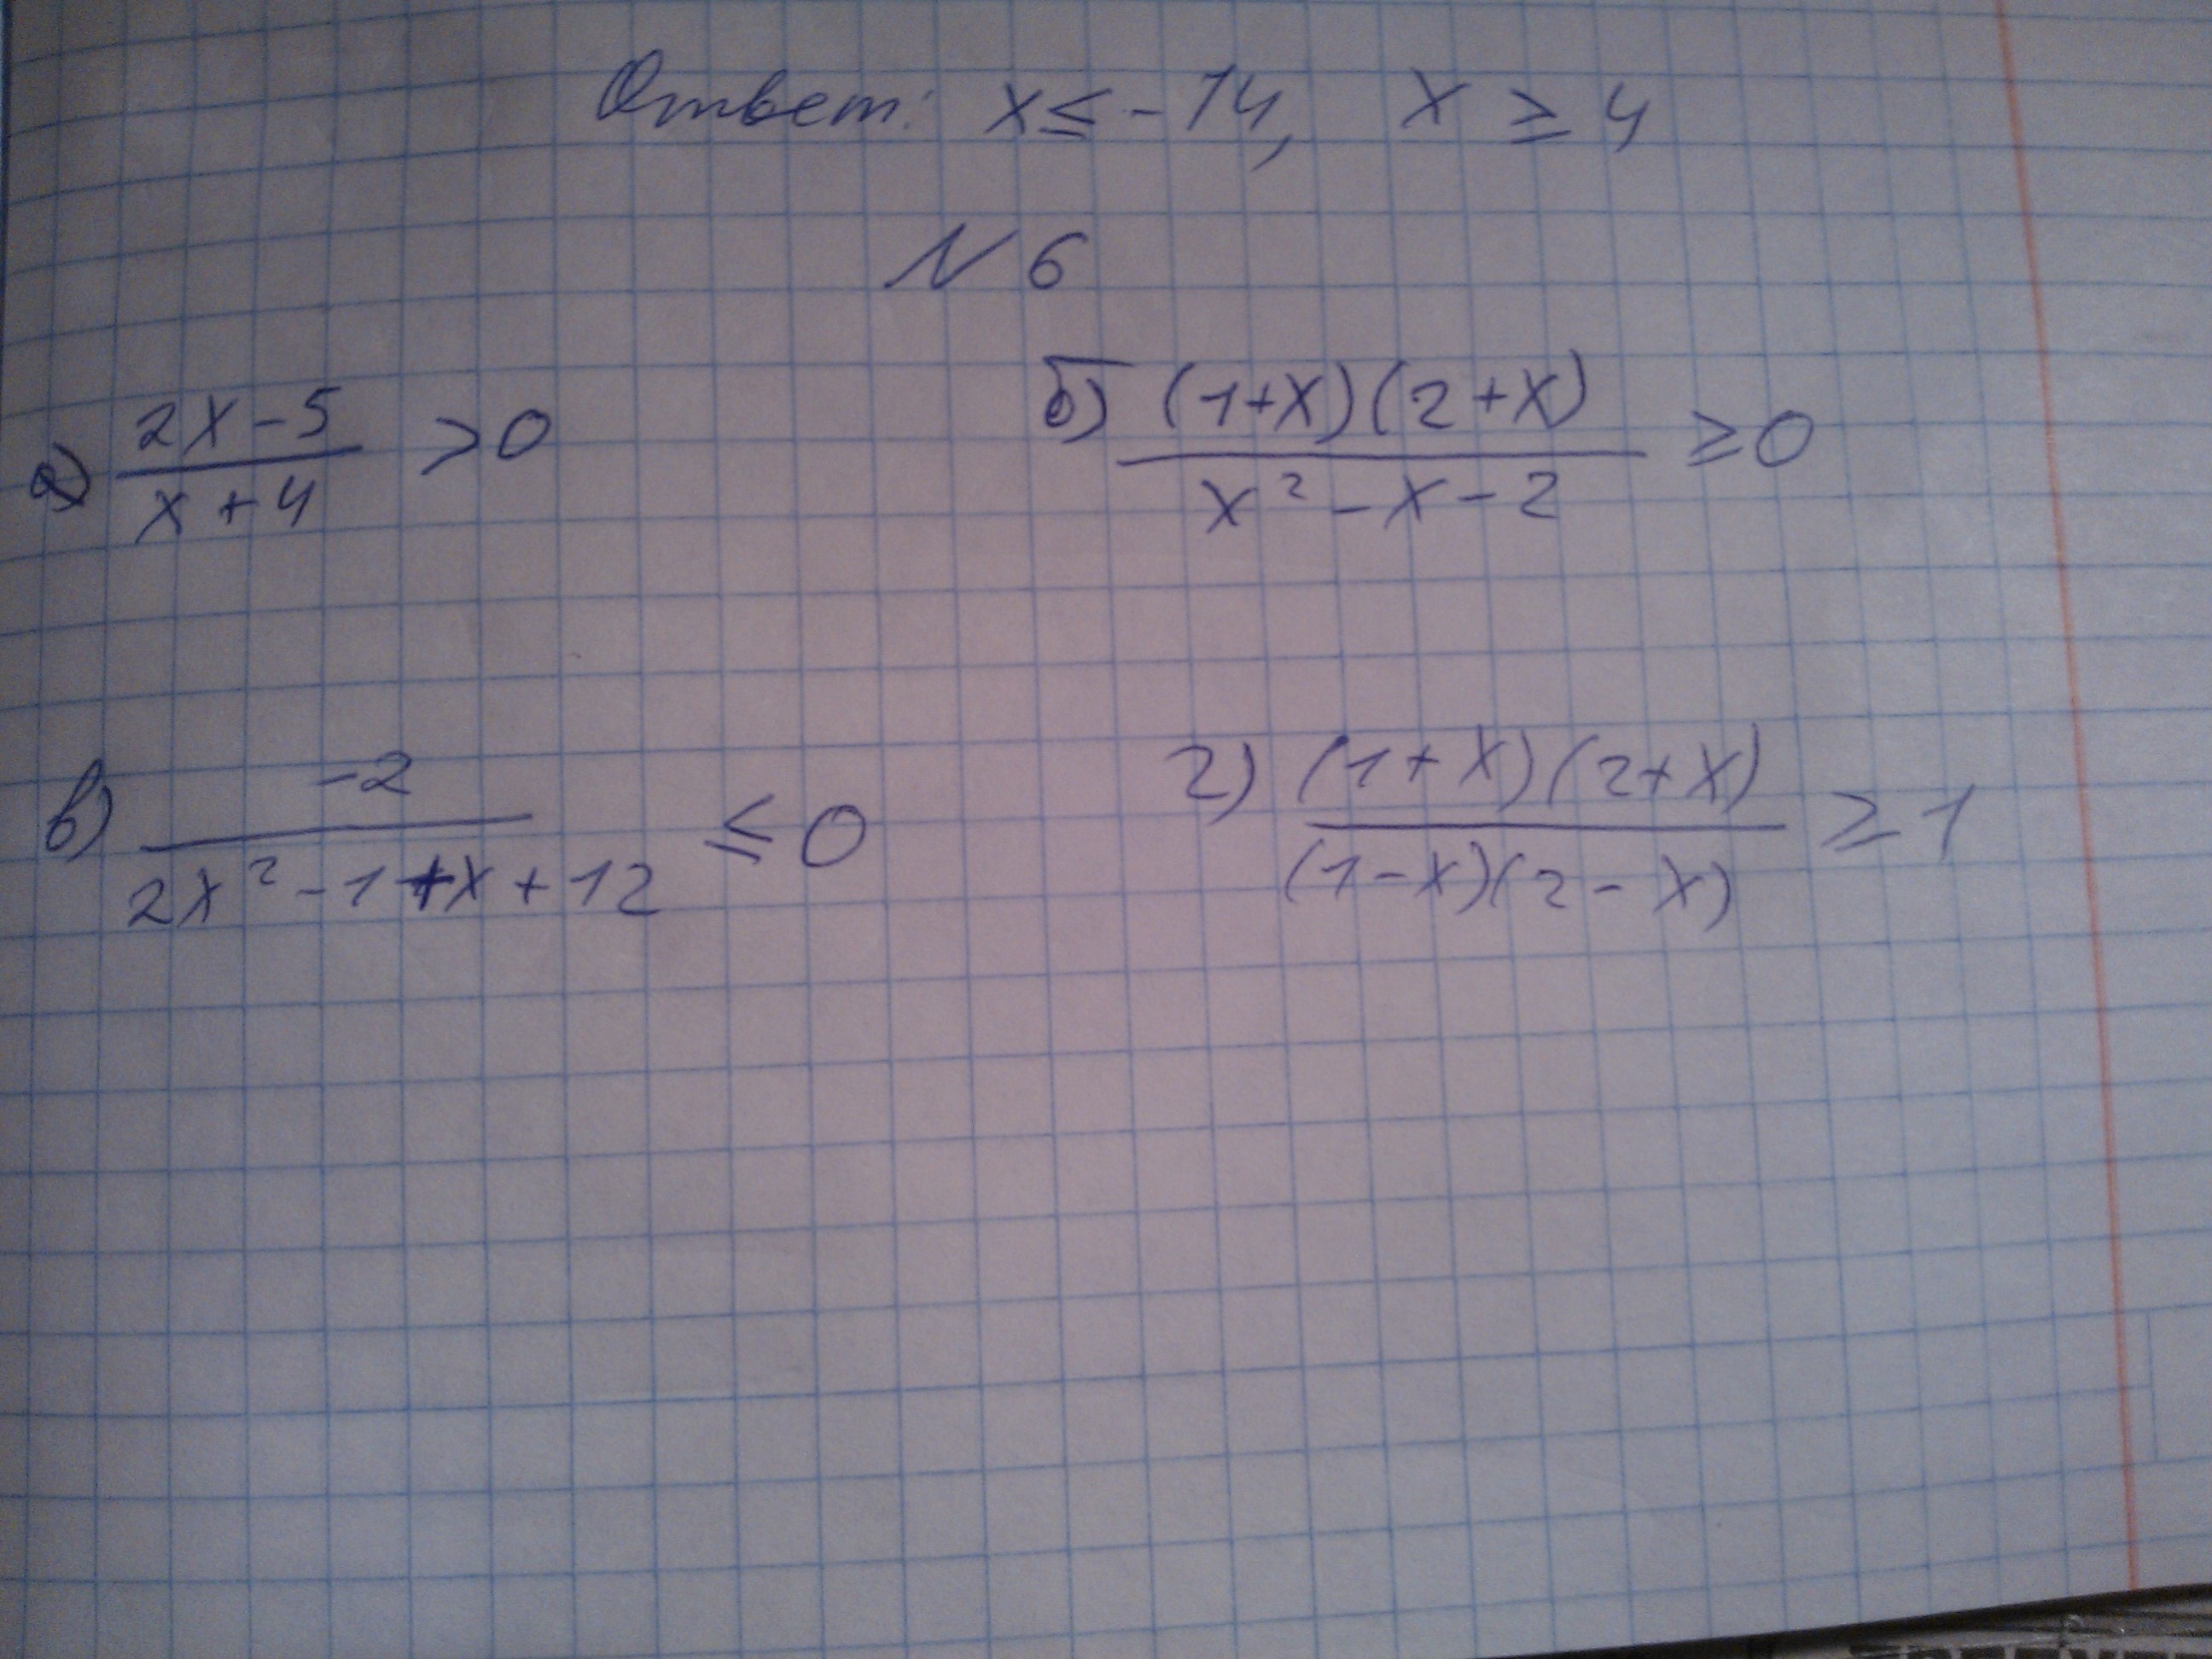 Ответ: x ≤ -14, x ≥ 4
N 6
а) (2x-5)/(x+4) > 0
б) ((1+x)(2+x))/(x²-x-2) ≥ 0
в) (-2)/(2x²-1+x+12) ≤ 0
г) ((1+x)(2+x))/((1-x)(2-x)) ≥ 1